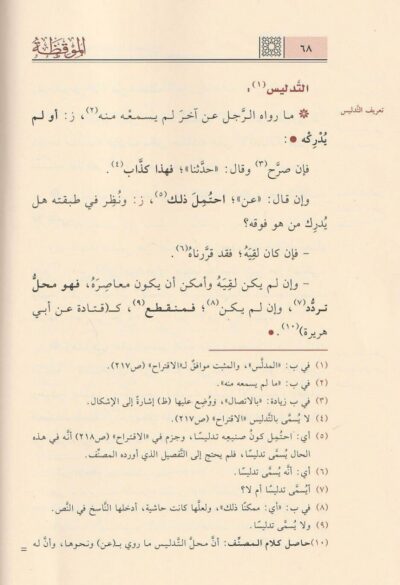 ٦٨
الموقظة
تعريف التَّدليس
التَّدليس(١):
ما رواه الرَّجل عن آخرَ لم يسمعْه منه(٢)، ز: أو لم
يُدْرِكْه:
فإن صرَّح(٣) وقال: «حدَّثنا»؛ فهذا كذَّاب(٤).
وإن قال: «عن»؛ احتُمِلَ ذلك(٥)، ز: ونُظِر في طبقته هل
يُدرِك من هو فوقَه؟
- فإن كان لقِيَهُ؛ فقد قرَّرناهُ(٦).
- وإن لم يكن لقِيَهُ وأمكن أن يكون معاصِرَهُ، فهو محلُّ
تردُّد(٧)، وإن لم يكن(٨)؛ فمنقطع(٩)، كـ(قتادة عن أبي
هريرة)(١٠).
(١) في ب: «المدلَّس»، والمثبت موافقٌ لـ«الاقتراح» (ص٢١٧).
(٢) في ب: «ما لم يسمعه منه».
(٣) في ب زيادة: «بالاتصال»، ووُضِع عليها (ظ) إشارةً إلى الإشكال.
(٤) لا يُسمَّى بالتَّدليس «الاقتراح» (ص٢١٧).
(٥) أي: احتُمِل كونُ صنيعِه تدليسًا، وجزم في «الاقتراح» (ص٢١٨) أنَّه في هذه
الحال يُسمَّى تدليسًا، فلم يحتج إلى التَّفصيل الذي أورده المصنِّف.
(٦) أي: أنَّه يُسمَّى تدليسًا.
(٧) أيُسمَّى تدليسًا أم لا؟
(٨) في ب: «أي: ممكنًا ذلك»، ولعلَّها كانت حاشية، أدخلها النَّاسخ في النَّص.
(٩) ولا يُسمَّى تدليسًا.
(١٠) حاصل كلام المصنِّف: أنَّ محلَّ التَّدليس ما روي بـ(عن) ونحوها، وأن له =